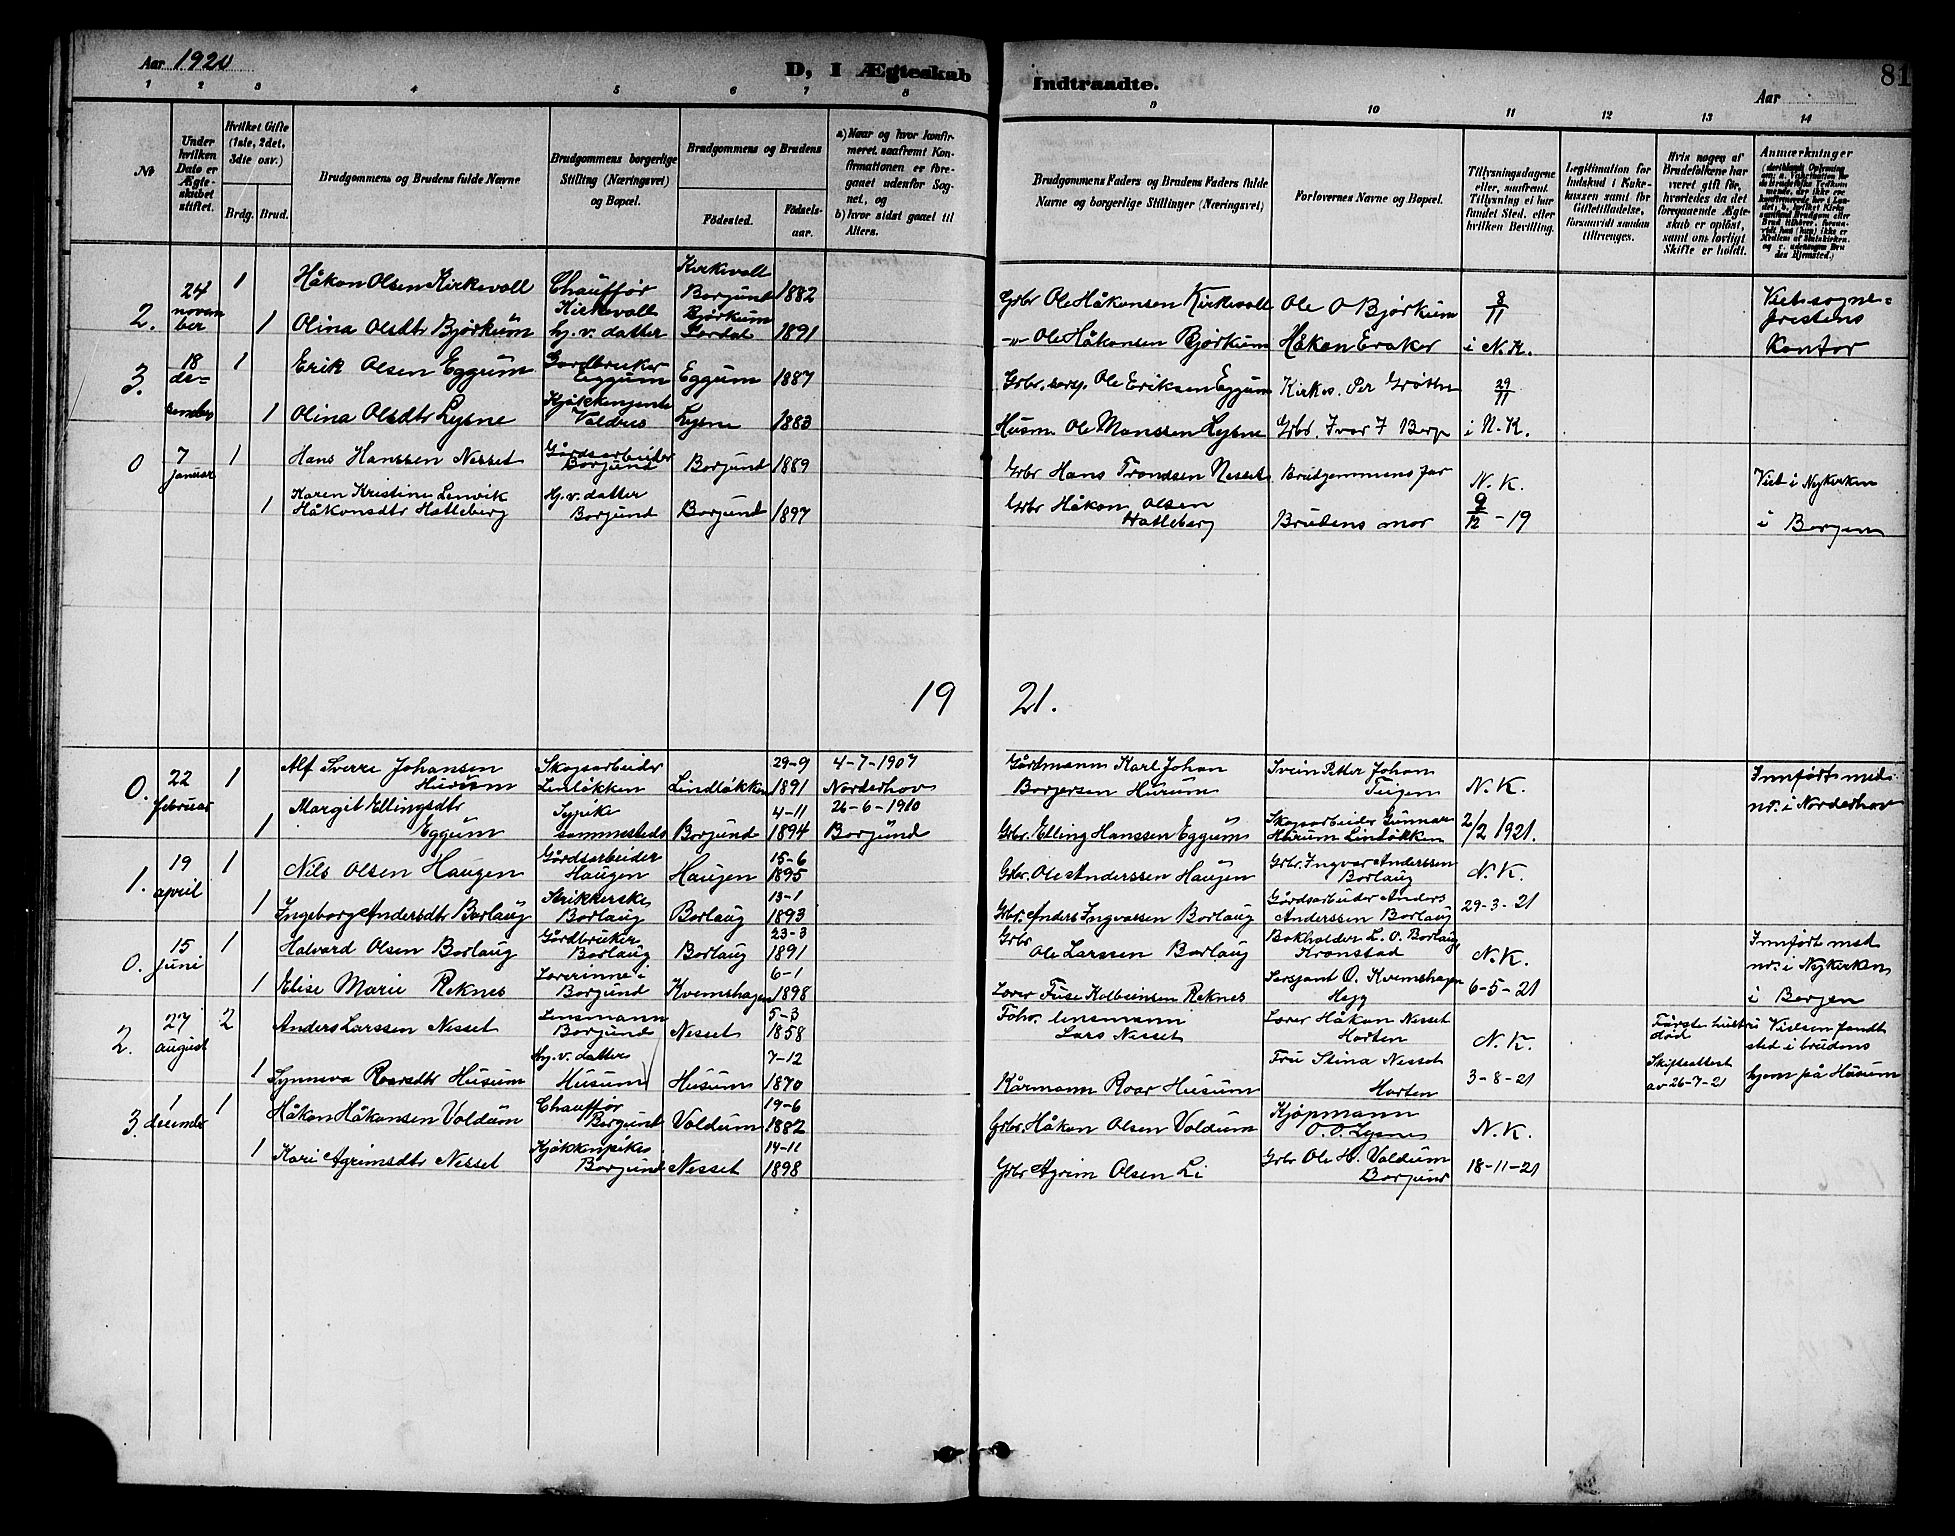 Aar 1920
D, I Ægteskab
Indtraadte.
Aar
81
1 2 3 4 5 6 7 8 9 10 11 12 13 14
No
Under hvilken Dato er Ægte-skabet stiftet.
Hvilket Gifte (1ste, 2det, 3die osv.)
Brdg. Brud.
Brudgommens og Brudens fulde Navne
Brudgommens borgerlige Stilling (Næringsvei) og Bopæl.
Brudgommens og Brudens
Fødested.
Fødsels-aar.
a) Naar og hvor konfir-meret, saafremt Kon-firmationen er fore-gaaet udenfor Sog-net, og
b) hvor sidst gaaet til Alters.
Brudgommens Faders og Brudens Faders fulde Navne og borgerlige Stillinger (Næringsvei)
Forlovernes Navne og Bopæl.
Tillysningsdagene eller, saafremt Tillysning ei har fundet Sted, efter hvilken Bevilling.
Legitimation for Indskud i Enke-kassen samt for Giftetilladelse, forsaavidt saadan tiltrænges.
Hvis nogen af Brudefolkene har været gift før, hvorledes da det foregaaende Ægte-skab er opløst, samt om lovligt Skifte er holdt.
Anmærkninger
2. 24 november 1 Håkon Olsen Kirkevoll Chauffør Kirkevoll Kirkevoll Borgund 1882 Grbr Ole Håkonsen Kirkevoll Ole O Bjørkum 8/11 Viet sogne=prestens Kontor
1 Olina Olsdtr Bjørkum Hj. v. datter Bjørkum Lærdal 1891 -"- Ole Håkonsen Bjørkum Håkon Eraker i N.K.
3. 18 de=sember 1 Erik Olsen Eggum Gardbruker Eggum Eggum 1887 Grbr. Ole Eriksen Eggum Kirkes. Per Grøthe 29/11
1 Olina Olsdtr Lysne Kjøkkenjente Valdres Lysne 1883 Husm. Ole Monssen Lysne Grbr. Ivar I Berge i N.K.
0 7 januar 1 Hans Hanssen Nesset Gårdsarbeider Borgund Borgund 1889 Grbr Hans Trondsen Nesset Brudgommens far N. K. Viet i Nykirken
1 Karen Kristine Lenvik Håkonsdtr Hatleberg Hj. v. datter Borgund Borgund 1897 Grbr Håkon Olsen Hatleberg Brudens mor 9/12 - 19 i Bergen
19 21.
0. 22 februar 1 Alf Sverre Johansen Hurum Skogsarbeider Linløkken Lindløkken 29-9 1891 4-7-1907 Norderhov Gårdmann Karl Johan Borgersen Hurum Svein Petter Johan Teigen N.K. Innført med nr. i Norderhov
1 Margit Ellingsdtr Eggum Sypike sammesteds Borgund 4-11 1894 26-6-1910 Borgund Grbr. Elling Hanssen Eggum Skogsarbeider Gunnar Hurum Linløkken 2/2 1921.
1. 19 april 1 Nils Olsen Haugen Gårdsarbeider Haugen Haugen 15-6 1895 Grbr. Ole Anderssen Haugen Grbr. Ingvar Anderssen Borlaug N.K.
1 Ingeborg Andersdtr Borlaug Strikkerske Borlaug Borlaug 13-1 1893 Grbr. Anders Ingvarsen Borlaug Gårdsarbeider Anders Anderssen Borlaug 29-3-21
0. 15 juni 1 Halvard Olsen Borlaug Gårdbruker Borlaug Borlaug 23-3 1891 Grbr Ole Larssen Borlaug Bokholder L. O. Borlaug Kronstad N.K. Innført med nr. i Nykirken
1 Elise Marie Reknes Lærerinne i Borgund Kvemshagen 6-1 1898 Lærer Fuse Kolbeinsen Reknes Sersjant O. Kvemshagen Hegg 6-5-21 i Bergen
2. 27 august 2 Anders Larssen Nesset Lensmann Borgund Nesset 5-3 1858 Fohv. lensmann Lars Nesset Lærer Håkon Nesset Horten N.K. Første hustru død Vielsen fandt sted i brudens
1 Synneva Roarsdtr Husum Hj. v. datter Husum Husum 7-12 1870 Kårmann Roar Husum Fru Stina Nesset Horten 3-8-21 Skifteattest av 26-7-21 hjem på Husum
3. 1 december 1 Håkon Håkonsen Voldum Chauffør Borgund Voldum 19-6 1882 Grbr. Håkon Olsen Voldum Kjøpmann O. O. Lysne N.K.
1 Kari Agrimsdtr Nesset Kjøkkenpike Borgund Nesset 14-11 1898 Grbr Agrim Olsen Li Grbr Ole H. Voldum Borgund 18-11-21